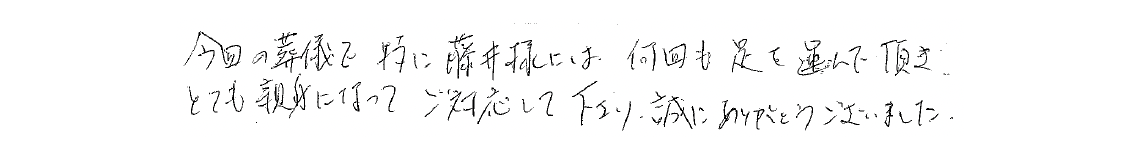 今回の葬儀で 特に 藤井様には 何回も 足を 運んで 頂き
とても 親身になって ご対応して 下さり、誠に ありがとうございました.